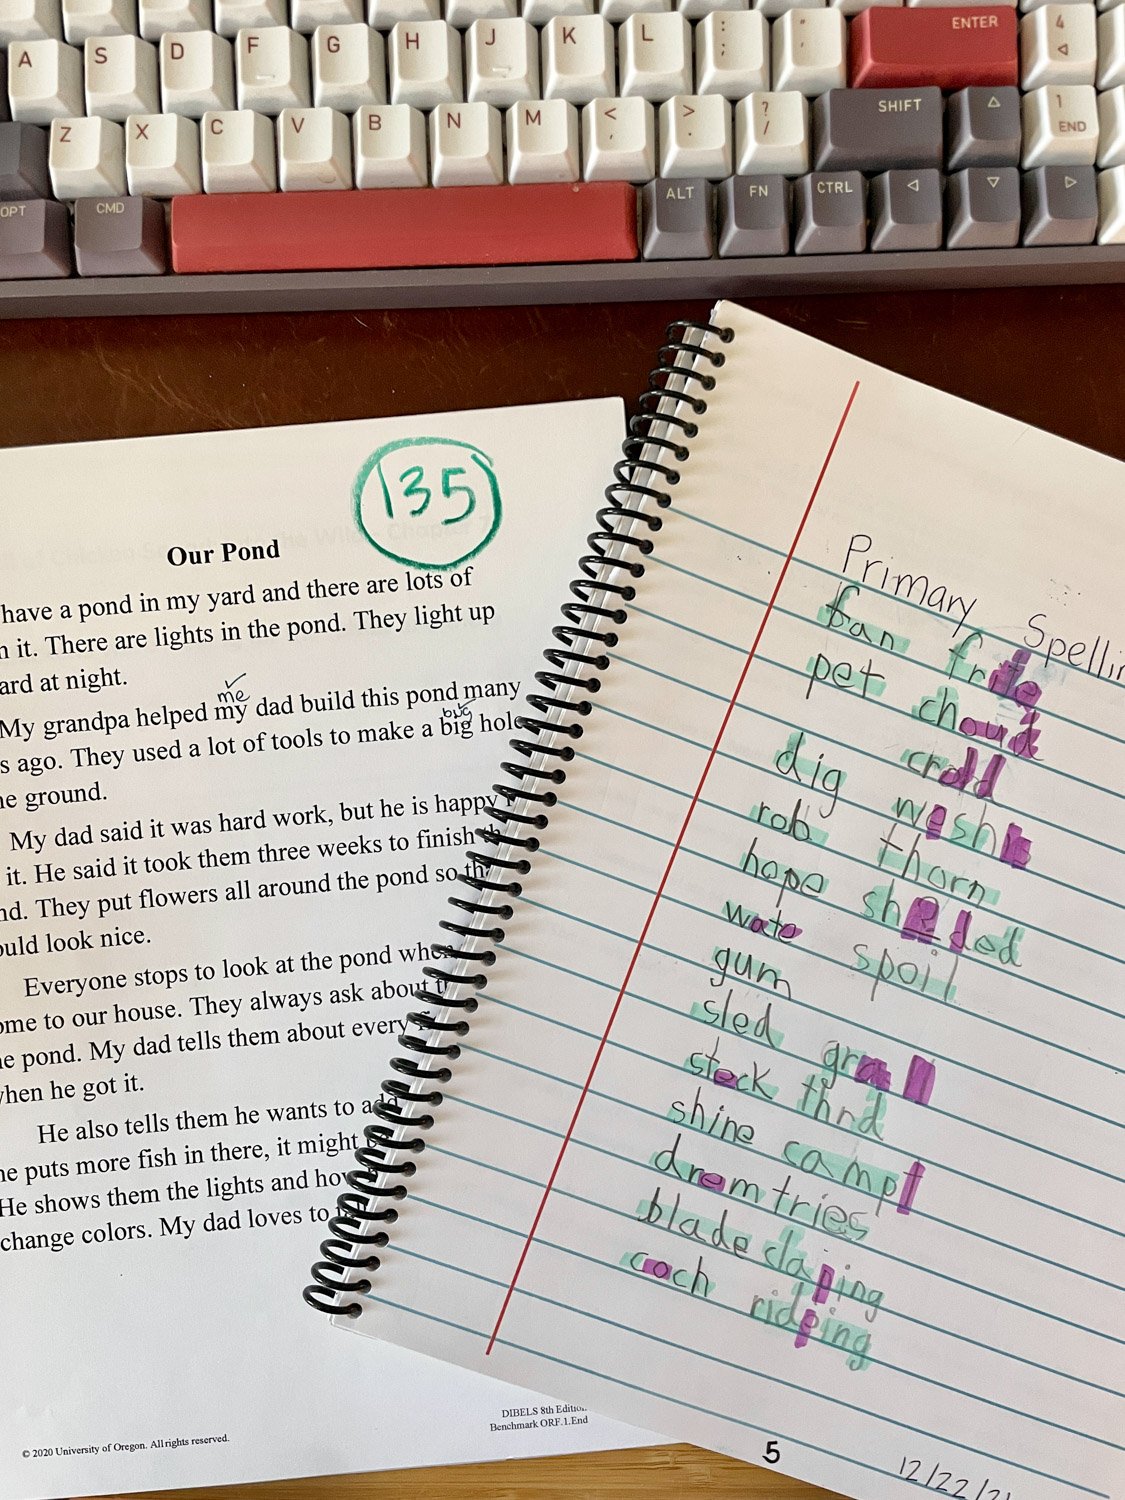 A S D F G H J K L : ; " ' ENTER 4
Z X C V B N M < , > . ? / SHIFT 1 END
OPT CMD ALT FN CTRL
135
Our Pond
have a pond in my yard and there are lots of
n it. There are lights in the pond. They light up
ard at night.
me
My grandpa helped my dad build this pond many
bug
s ago. They used a lot of tools to make a big hole
he ground.
My dad said it was hard work, but he is happy
it. He said it took them three weeks to finish
nd. They put flowers all around the pond so
ould look nice.
Everyone stops to look at the pond when
ome to our house. They always ask about
he pond. My dad tells them about every
when he got it.
He also tells them he wants to add
he puts more fish in there, it might
He shows them the lights and how
change colors. My dad loves to
© 2020 University of Oregon. All rights reserved.
DIBELS 8th Edition
Benchmark ORF.1.End
Primary Spellin
fan
pet
dig
rob
hope
wate
gum
sled
steck
shine
drem
blade
coch
choud
thorn
sheded
spoil
thrd
campt
tries
claping
5
12/22/21